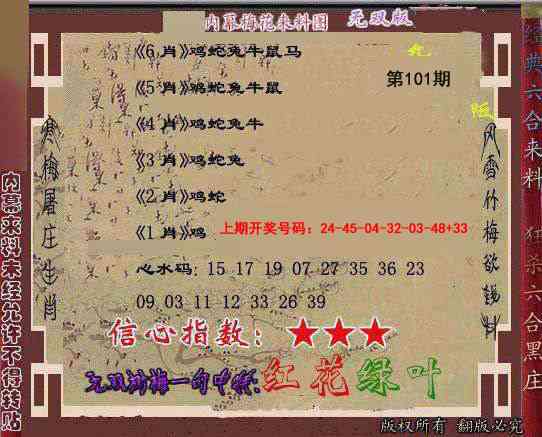 内幕梅花来料图 无双版
《6肖》鸡蛇兔牛鼠马
第101期
《5肖》鸡蛇兔牛鼠
《4肖》鸡蛇兔牛
《3肖》鸡蛇兔
《2肖》鸡蛇
《1肖》鸡
上期开奖号码：24-45-04-32-03-48+33
心水码: 15 17 19 07 27 35 36 23
09 03 11 12 33 26 39
信心指数：★★★
红花绿叶
版权所有 翻版必究
寒梅屠庄生肖
风雪竹梅欲
内幕来料未经允许不得转贴
经典六合来料 狂杀六合黑庄